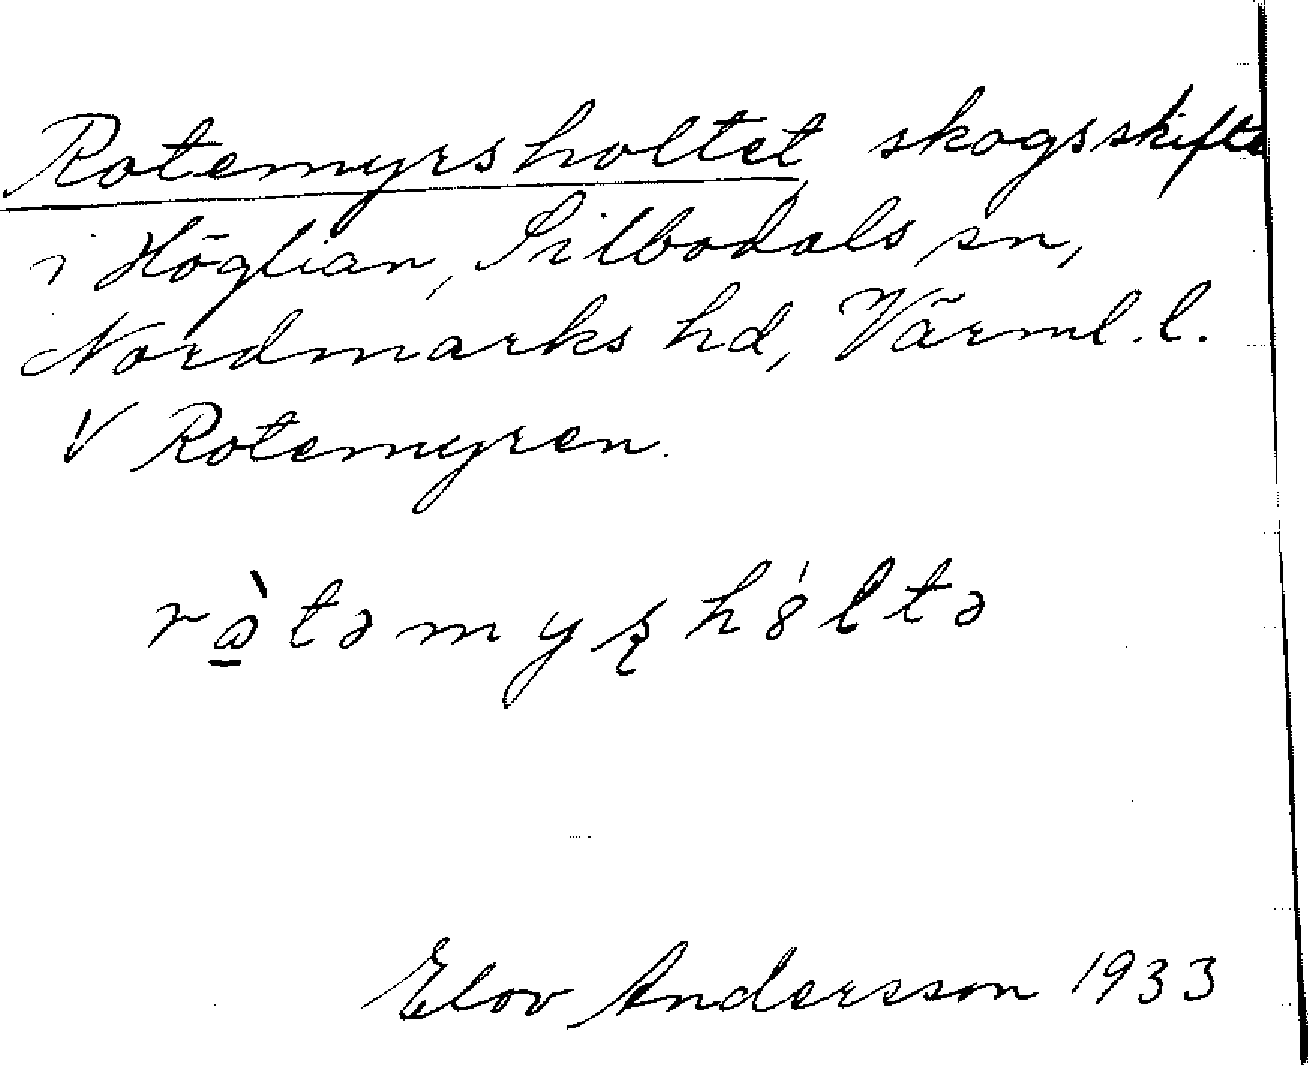 Rotemyrsholtet skogsskifte
i Höglian, Silbodals sn,
Nordmarks hd, Värml. l.
V Rotemyren.
Elov Andersson 1933